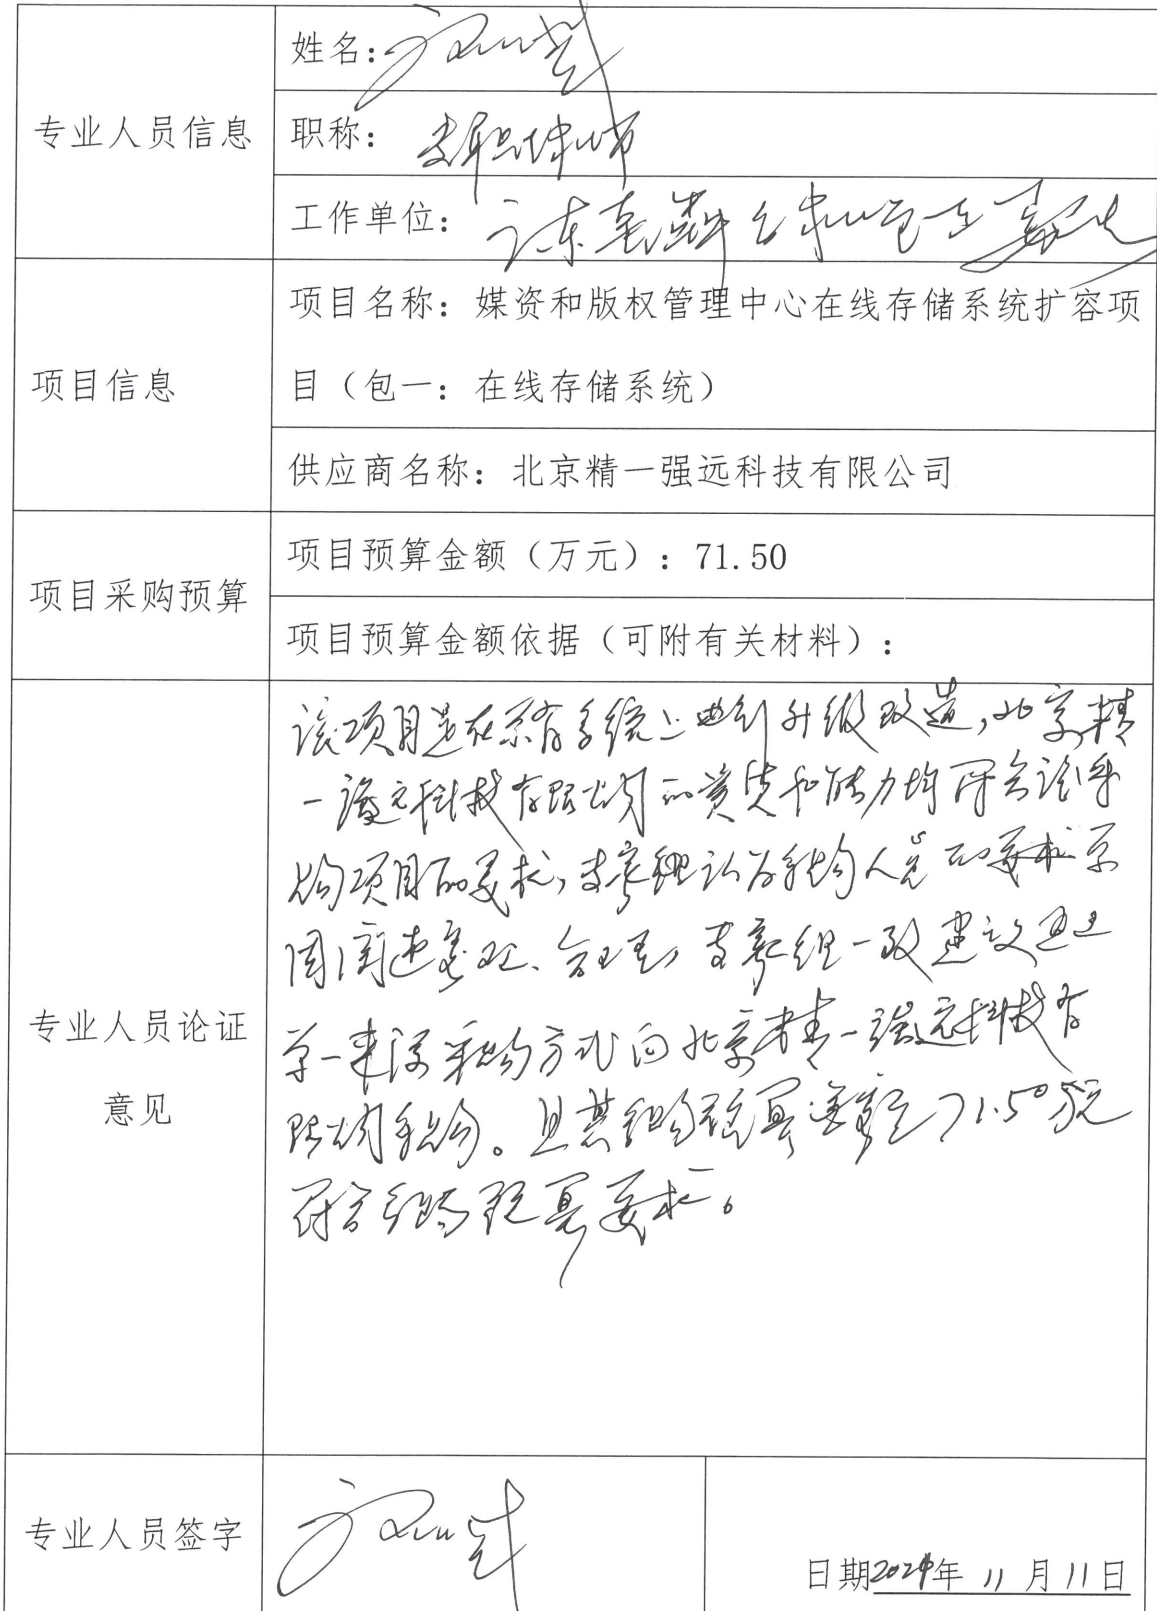 专业人员信息
姓名：
职称：
工作单位：
项目信息
项目名称：媒资和版权管理中心在线存储系统扩容项
目（包一：在线存储系统）
供应商名称：北京精一强远科技有限公司
项目采购预算
项目预算金额（万元）：71.50
项目预算金额依据（可附有关材料）：
专业人员论证
意见
该项目是在原有系统上进行升级改造，北京精
一强远科技有限公司的资质和能力均符合该采
购项目的要求，专家组认为采购人员的要求原
因阐述客观、合理，专家组一致建议
单一来源采购方式向北京精一强远科技有
限公司采购。且其采购预算金额是71.50万元
符合采购预算要求。
专业人员签字
日期2024年 11 月 11 日